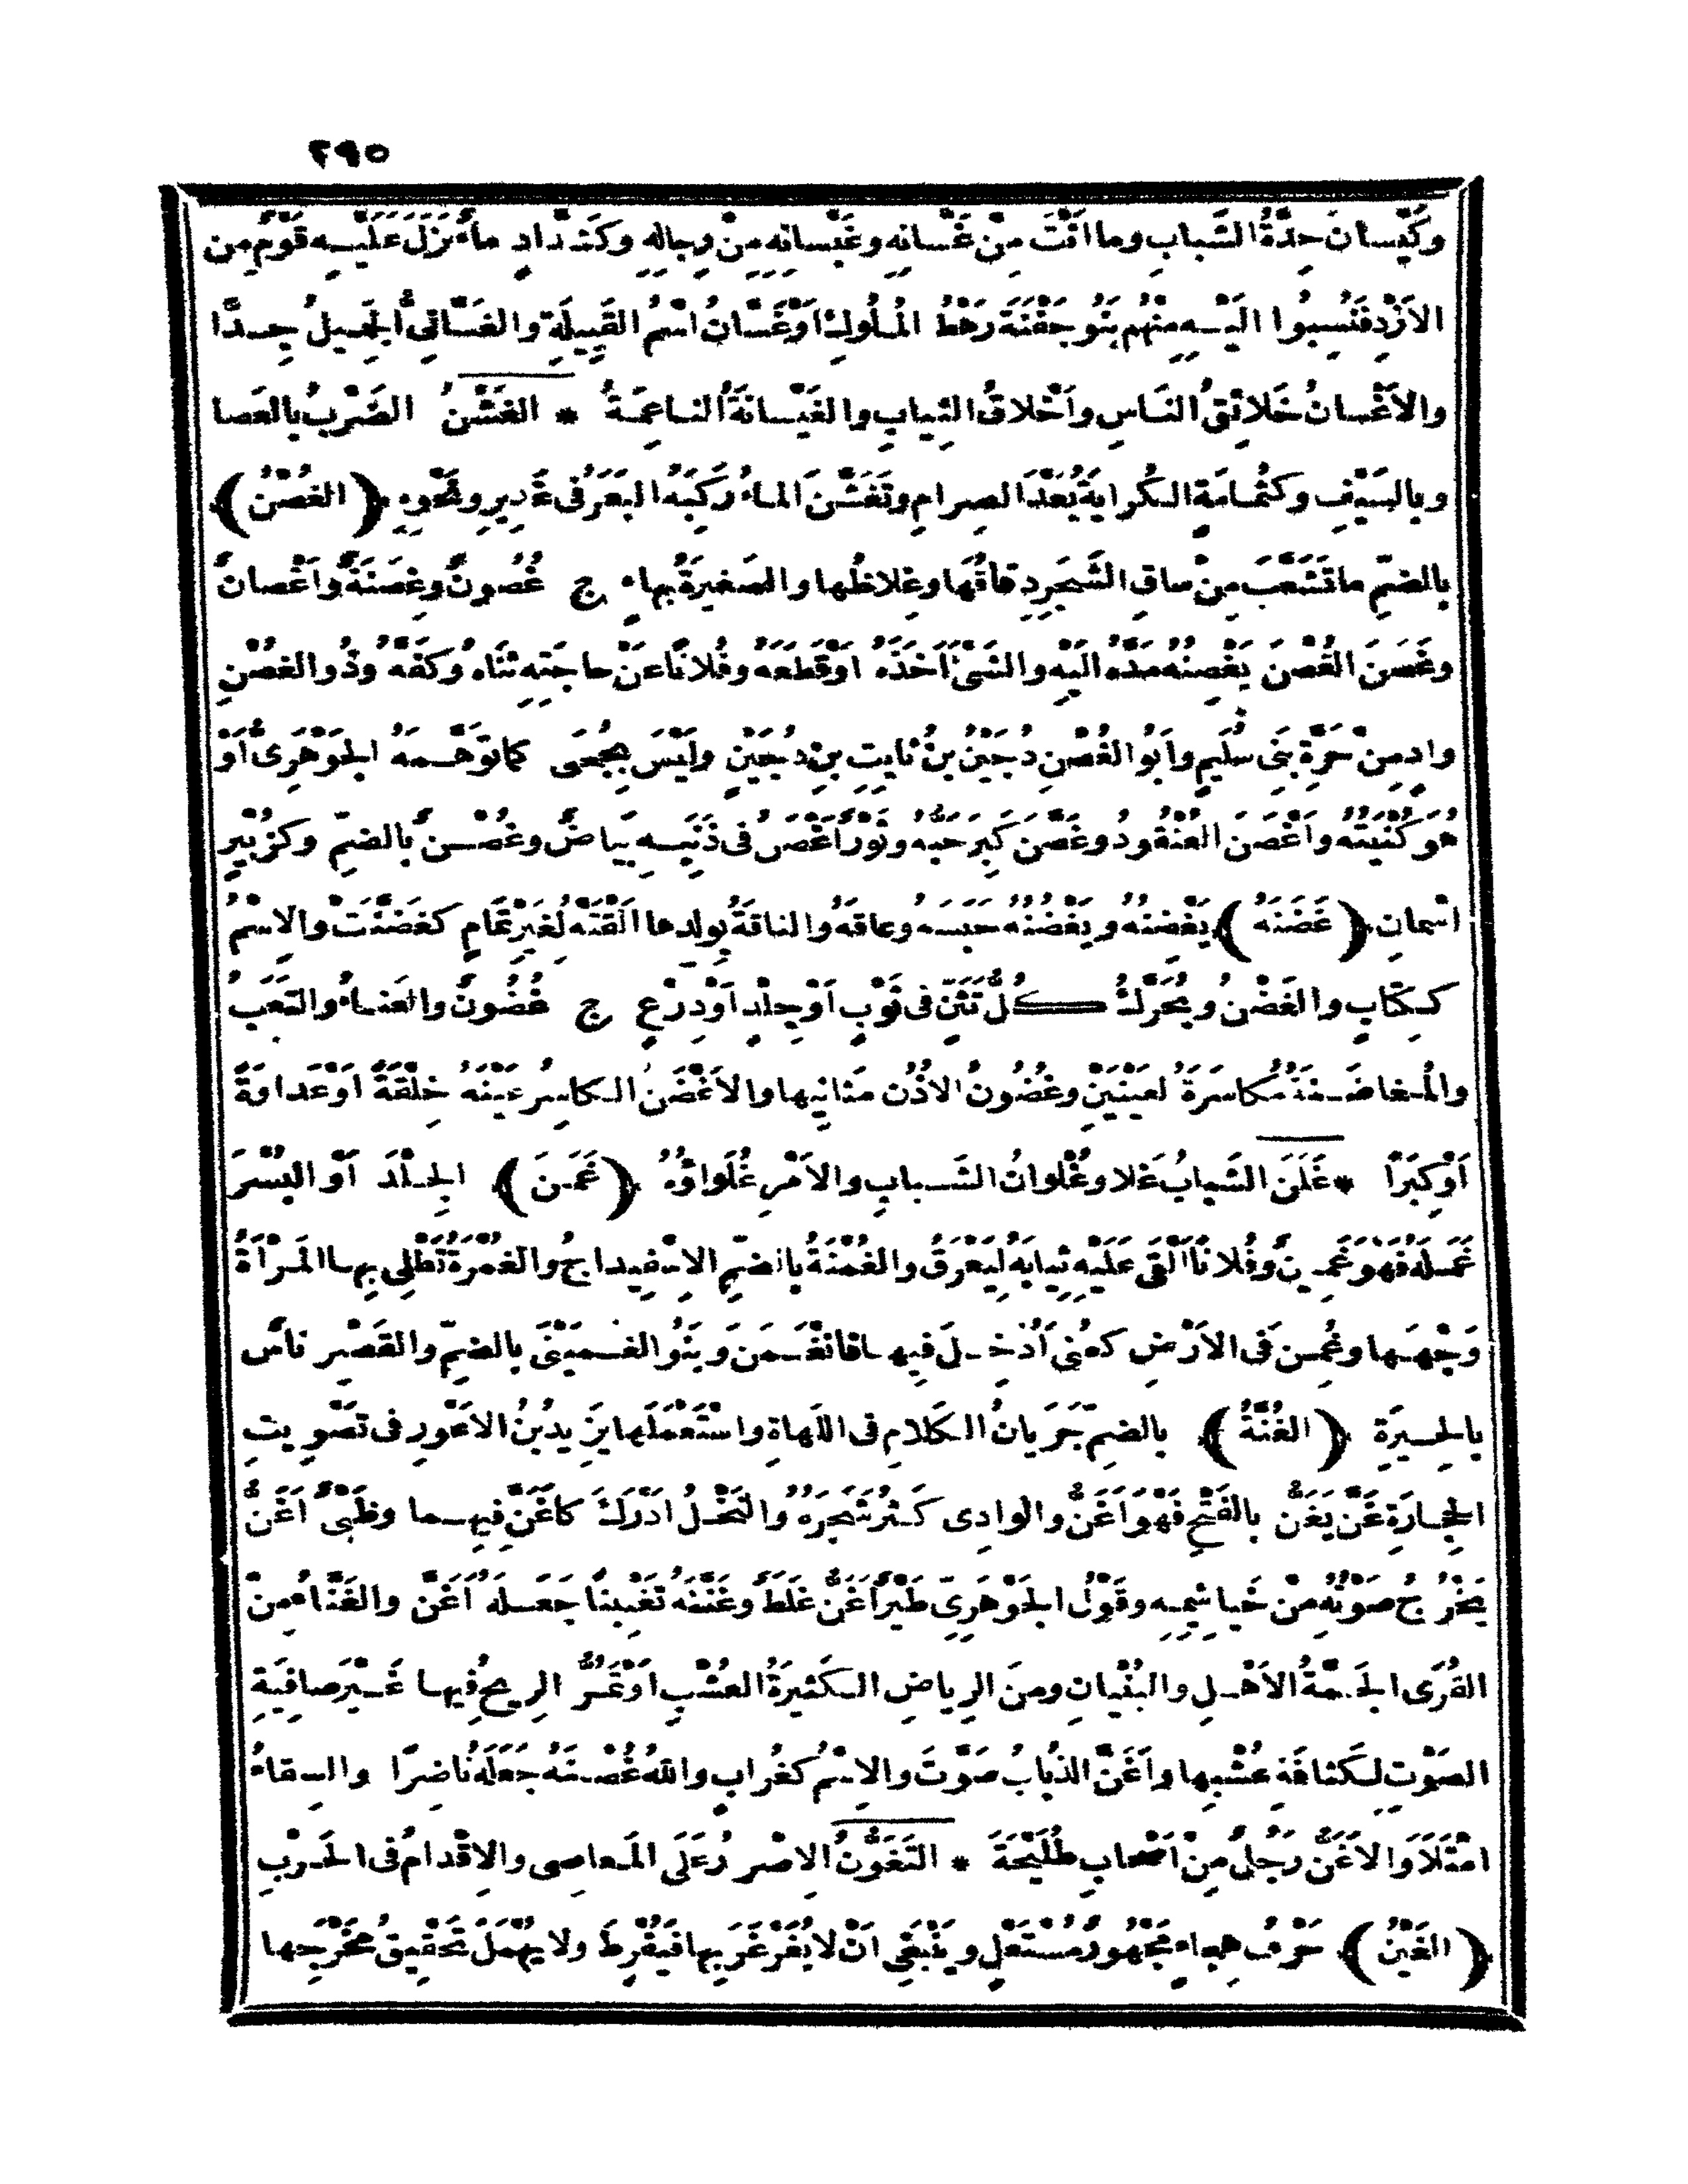 ٢٩٥
وكَيْسانَ حِدَّةُ الشَّبابِ وما انْتَ مِنْ غَسانِهِ وغَيْسانِهِ مِنْ رِجالِهِ وكَشَدَّادٍ ماءٌ نَزَلَ عَلَيْهِ قَوْمٌ مِن
الاَزْدِ فَنُسِبُوا الَيْهِ مِنْهُم بَنُو جَفْنَةَ رَهْطُ المُلُوكِ اَوْ غَسَّانُ اسْمُ القَبِيلَةِ والغَسَّانِىُّ الجَمِيلُ جِدًّا
والاَغْسانُ خَلائِقُ النَّاسِ واَخْلاقُ الثِيابِ والغَيْسانَةُ النَاعِمَةُ * الغَشْنُ الضَرْبُ بالعَصا
وبالسَيْفِ وكَثُمامَةٍ الكُرابَةُ بَعْدَ الصِرامِ وتَغَشَّنَ الماءُ رَكِبَهُ البَعَرُ فى غَدِيرٍ ونَحْوِهِ ﴿ الغُصْنُ ﴾
بالضمِّ ما تَشَعَّبَ مِنْ ساقِ الشَّجَرِ دِقاقُها وغِلاظُها والصَغيرَةُ بهاءٍ ج غُصُونٌ وغِصَنَةٌ واَغْصانٌ
وغَصَنَ الغُصْنَ يَغْصِنُهُ مَدَّهُ الَيْهِ والشَىْءَ اَخَذَهُ اَوْ قَطَعَهُ وفُلانًا عَنْ حاجَتِهِ ثَناهُ وكَفَّهُ وذُو الغصْنِ
وادٍ مِنْ حَرَّةِ بَنِى سُلَيْمٍ واَبُو الغُصْنِ دُجَيْنُ بنُ ثابِتِ بنِ دُجَيْنٍ ولَيْسَ بِجُحَى كما تَوَهَّمَهُ الجَوْهَرِىُّ اَوْ
هُوَ كُنْيَتُهُ واَغْصَنَ العُنْقُودُ وغَصَّنَ كَبِرَ حَبُّهُ وثَوْرٌ اَغْصَنُ فى ذَنَبِهِ بَياضٌ وغُصْنٌ بالضمِّ وكَزُبَيْرٍ
اسْمانِ ﴿ غَضَنَهُ ﴾ يَغْضِنُهُ ويَغْضُنُهُ حَبَسَهُ وعاقَهُ والناقَةُ بِوَلَدِها اَلْقَتْهُ لِغَيْرِ تَمامٍ كغَضَّنَتْ والاسْمُ
كَكِتابٍ والغَضْنُ ويُحَرَّكُ كُلُّ تَثَنٍّ فى ثَوْبٍ اَوْ جِلْدٍ اَوْ دِرْعٍ ج غُضُونٌ والعَناءُ والتَعَبُ
والمُغاضَنَةُ مُكاسَرَةُ لعَيْنَيْنِ وغُضُونُ الاذُنِ مَثانِيها والاَغْضَنُ الكاسِرُ عَيْنَهُ خِلْقَةً اَوْ عَداوَةً
اَوْ كِبْرًا * غَلَنَ الشَّبابُ غَلا وغُلْوانُ الشَّبابِ والاَمْرِ غُلَواؤُهُ ﴿ غَمَنَ ﴾ الجِلْدَ اَوِ البُسْرَ
غَمَلَهُ فَهْوَ غَمِينٌ وفُلانًا اَلْقَى عَلَيْهِ ثِيابَهُ لِيَعْرَقَ والغُمْنَةُ بالضمِّ الاِسْفِيداجُ والغُمْرَةُ تَطْلِى بِها المَرْاَةُ
وَجْهَها وغُمِنَ فى الاَرْضِ كعُنِىَ اُدْخِلَ فِيها فانْغَمَنَ وبَنُو الغُمَيْنَى بالضمِّ والقَصْرِ ناسٌ
بالحِيرَةِ ﴿ الغُنَّةُ ﴾ بالضمِّ جَرَيانُ الكَلامِ فى اللَهاةِ واسْتَعْمَلَها يَزِيدُ بنُ الاَعْوَرِ فى تَصْوِيتِ
الحِجارَةِ غَنَّ يَغَنُّ بالفَتْحِ فَهْوَ اَغَنُّ والوادِى كَثُرَ شَجَرُهُ والنَخْلُ ادْرَكَ كاَغَنَّ فِيهِما وظَبْىٌ اَغَنُّ
يَخْرُجُ صَوْتُهُ مِنْ خَياشِيمِهِ وقَوْلُ الجَوْهَرِىِّ طَيْرٌ اَغَنُّ غَلَطٌ وغَنَّنَهُ تَغْنِينًا جَعَلَهُ اَغَنَّ والغَنَّاءُ مِنَ
القُرَى الجَمَّةُ الاَهْلِ والبُنْيانِ ومِنَ الرِياضِ الكَثِيرَةُ العُشْبِ اَوْ تَمُرُّ الرِيحُ فِيها غَيْرَ صافِيَةِ
الصَوْتِ لكَثافَةِ عُشْبِها واَغَنَّ الذُبابُ صَوَّتَ والاِسْمُ كغُرابٍ واللهُ غُصْنَهُ جَعَلَهُ ناضِرًا والسِقاءُ
امْتَلَاَ والاَغَنُّ رَجُلٌ مِنْ اَصْحابِ طُلَيْحَةَ * التَغَوُّنُ الاِصْرارُ عَلَى المَعاصِى والاِقْدامُ فى الحَرْبِ
﴿ الغَيْنُ ﴾ حَرْفُ هِجاءٍ مَجْهُورٌ مُسْتَعْلٍ ويَنْبَغِى اَنْ لا يُغَرْغَرَ بِها فَيُفْرِطَ ولا يُهْمَلَ تَحْقِيقُ مَخْرَجِها